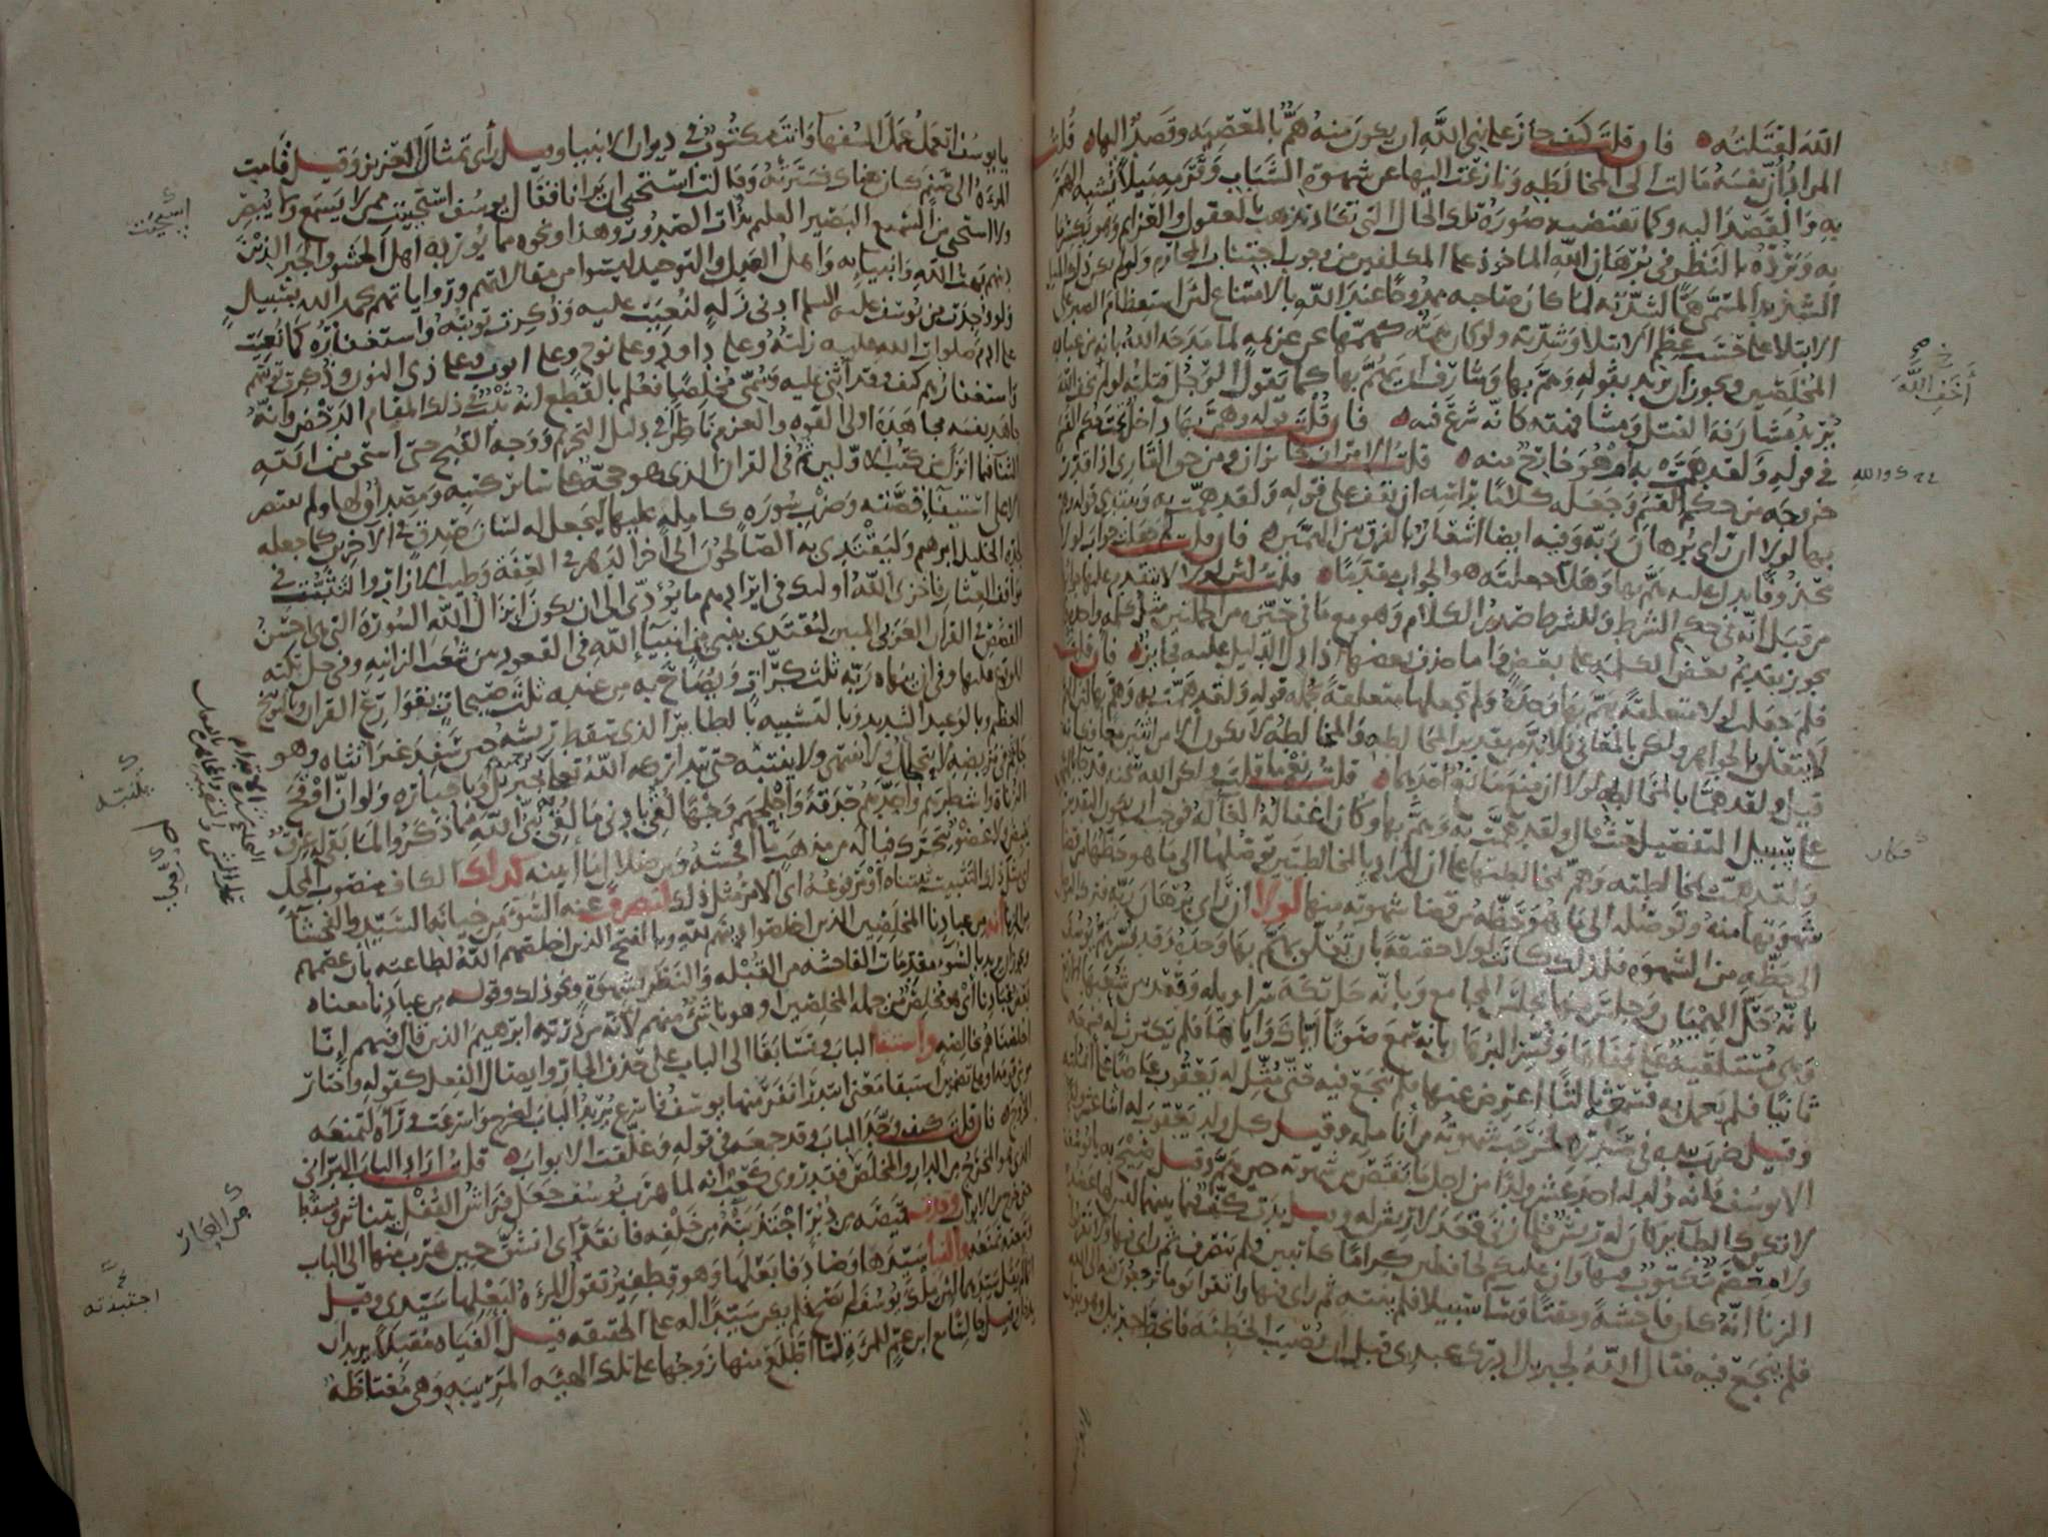 الله لقتلته فان قلت كيف جاز على نبي الله ان يكون منه هم بالمعصية وقصد اليها قلت
المراد ان نفسه مالت الى المخالطة ونازعت اليها عن شهوة الشباب وقرمه ميلا يشبه الهم
به والقصد اليه وكما تقتضيه صورة تلك الحال التي تكاد تذهب بالعقول والعزائم وهو يكسر ما
به ويرده بالنظر في برهان الله الماخوذ على المكلفين من وجوب اجتناب المحارم ولو لم يكن ذلك الميل
الشديد المسمى هما لشدته لما كان صاحبه ممدوحا عند الله بالامتناع لان استعظام الصبر على
الابتلا على حسب عظم الابتلا وشدته ولو كان همه كهمها عن عزيمة لما مدحه الله بانه من عباده
المخلصين ويجوز ان يريد بقوله وهم بها وشارف ان يهم بها كما يقول الرجل قتلته لو لم اخف الله
يريد مشارفة القتل ومشافهته كانه شرع فيه فان قلت قوله وهم بها داخل تحت حكم القسم
في قوله ولقد همت به ام هو خارج منه قلت الامران جائزان ومن حق القارئ اذا قدر
خروجه من حكم القسم وجعله كلاما براسه ان يقف على قوله ولقد همت به ويبتدي قوله وهم
بها لولا ان راى برهان ربه وفيه ايضا اشعار بالفرق بين الهمين فان قلت لم جعلت جواب لولا
محذوفا يدل عليه هم بها وهلا جعلته هو الجواب مقدما قلت لان لولا لا يتقدم عليها جوابها
من قبل انه في حكم الشرط وللشرط صدر الكلام وهو مع ما في حيزه من الجملتين مثل كلمة واحدة ولا
يجوز تقديم بعض الكلمة على بعض واما حذف بعضها اذا دل الدليل عليه فجائز فان قلت
فلم جعلت لولا متعلقة بهم بها وحده ولم تجعلها متعلقة بجملة قوله ولقد همت به وهم بها لان الهم
لا يتعلق بالجواهر ولكن بالمعاني فلا بد من تقدير المخالطة والمخالطة لا تكون الا من اثنين معا فكانه
قيل ولقد هما بالمخالطة لولا ان منع مانع احدهما قلت نعم ما قلت ولكن الله سبحنه قد جا بالهمين
على سبيل التفصيل حيث قال ولقد همت به وهم بها وكان اغفاله الغا له فوجب ان يكون التقدير
ولقد همت بمخالطته وهم بمخالطتها على ان المراد بالمخالطتين توصلها الى ما هو حظها من قضا
شهوتها منه وتوصله الى ما هو حظه من قضا شهوته منها لولا ان راى برهان ربه فترك التوصل
الى حظه من الشهوة فلذلك كانت لولا حقيقة بان تعلق بهم بها وحده وقد فسر هم يوسف
بانه حل الهميان وجلس منها مجلس المجامع وبانه حل تكة سراويله وقعد بين شعبها الاربع
وهي مستلقية على قفاها وفسر البرهان بانه سمع صوتا اياك واياها فلم يكترث له فسمعه
ثانيا فلم يعمل به فسمع ثالثا اعرض عنها فلم ينجع فيه حتى مثل له يعقوب عاضا على انملته
وقيل ضرب بيده في صدره فخرجت شهوته من انامله وقيل كل ولد يعقوب له اثنا عشر ولدا
الا يوسف فانه ولد له احد عشر ولدا من اجل ما نقص من شهوته حين هم وقيل صيح به يا يوسف
لا تكن كالطاير كان له ريش فلما زنى قعد لا ريش له وقيل بدت كف فيما بينهما ليس لها عضد
ولا معصم مكتوب فيها وان عليكم لحافظين كراما كاتبين فلم ينصرف ثم راى فيها ولا تقربوا
الزنا انه كان فاحشة ومقتا وسا سبيلا فلم ينته ثم راى فيها واتقوا يوما ترجعون فيه الى الله
فلم ينجع فيه فقال الله لجبريل ادرك عبدي قبل ان يصيب الخطية فانحط جبريل وهو يقول
اخف الله
يا يوسف اتعمل عمل السفها وانت مكتوب في ديوان الانبيا وقيل راى تمثال العزيز وقيل قامت
المراة الى صنم كان هناك فسترته وقالت استحي ان يرانا فقال يوسف استحييت ممن لا يسمع ولا يبصر
ولا استحي من السميع البصير العليم بذات الصدور وهذا ونحوه مما يورده اهل الحشو والجبر الذين
دينهم بهت الله وانبيائه واهل العدل والتوحيد ليسوا من مقالاتهم ورواياتهم بحمد الله بسبيل
ولو وجدت من يوسف عليه السلم ادنى زلة لنعيت عليه وذكرت توبته واستغفاره كما نعيت
على ادم صلوات الله عليه زلته وعلى داود وعلى نوح وعلى ايوب وعلى ذي النون وذكرت توبتهم
واستغفارهم كيف وقد اثني عليه وسمي مخلصا فعلم بالقطع انه ثبت في ذلك المقام الدحض وانه
جاهد نفسه مجاهدة اولي القوة والعزم ناظرا في دليل التحريم ووجه القبح حتى استحق من الله
الثنا فيما انزل من كتب الاولين ثم في القران الذي هو حجة على سائر كتبه ومصدق لها ولم يقتصر
الا على استيفا قصته وضرب سورة كاملة عليها ليجعل له لسان صدق في الاخرين كما جعله
لجده الخليل ابرهيم وليقتدي به الصالحون الى اخر الدهر في العفة وطيب الازار والتثبت في
مواقف العثار فاخزى الله اولئك في ايرادهم ما يؤدي الى ان يكون انزال الله السورة التي هي احسن
القصص في القران العربي المبين ليقتدى بنبي من انبيا الله في القعود بين شعب الزانية وفي حل تكته
للوقوع عليها وفي ان ينهاه ربه ثلث كرات ويصاح به من عنده ثلث صيحات بقوارع القران وبالتوبيخ
العظيم وبالوعيد الشديد وبالتشبيه بالطائر الذي سقط ريشه حين سفد غير انثاه وهو
جاثم في مربضه لا يتحلحل ولا ينتهي ولا ينتبه حتى يتداركه الله تعالى بجبريل وباجباره ولو ان اوقح
الزناة واشطرهم واحدهم حدقة واجلحهم وجها لقي بادنى ما لقي نبي الله مما ذكروا لما بقي له عرق
ينبض ولا عضو يتحرك فيا له من مذهب ما افحشه ومن ضلال ما ابينه كذلك الكاف منصوب المحل
اي مثل ذلك التثبيت ثبتناه او مرفوعه اي الامر مثل ذلك لنصرف عنه السوء من خيانة السيد والفحشا
من الزنا انه من عبادنا المخلصين الذين اخلصوا دينهم لله وبالفتح الذين اخلصهم الله لطاعته بان عصمهم
ويجوز ان يريد بالسوء مقدمات الفاحشة من القبلة والنظر بشهوة ونحو ذلك وقوله من عبادنا معناه
بعض عبادنا اي هو مخلص من جملة المخلصين او هو ناشئ منهم لانه من ذرية ابرهيم الذين قال فيهم انا
اخلصناهم بخالصة واستبقا الباب وتسابقا الى الباب على حذف الجار وايصال الفعل كقوله واختار
موسى قومه او على تضمين استبقا معنى ابتدرا نفر منها يوسف فاسرع يريد الباب ليخرج واسرعت وراه لتمنعه
الخروج فان قلت كيف وحد الباب وقد جمعه في قوله وغلقت الابواب قلت اراد الباب البراني
الذي هو المخرج من الدار والمخلص فقد روى كعب انه لما هرب يوسف جعل فراش القفل يتناثر ويسقط
حتى خرج من الابواب وقدت قميصه من دبر اجتذبته من خلفه فانقد اي انشق حين هرب منها الى الباب
وتبعته تمنعه والفيا سيدها وصادفا بعلها وهو قطفير تقول المراة لبعلها سيدي وقيل
انما لم يقل سيدهما لان ملك يوسف لم يصح فلم يكن سيدا له على الحقيقة قيل الفياه مقبلا يريد ان
يدخل وقيل جالسا مع ابن عم للمراة لما اطلع منها زوجها على تلك الهيئة المريبة وهي مغتاظة
استحييت
اجتبذته